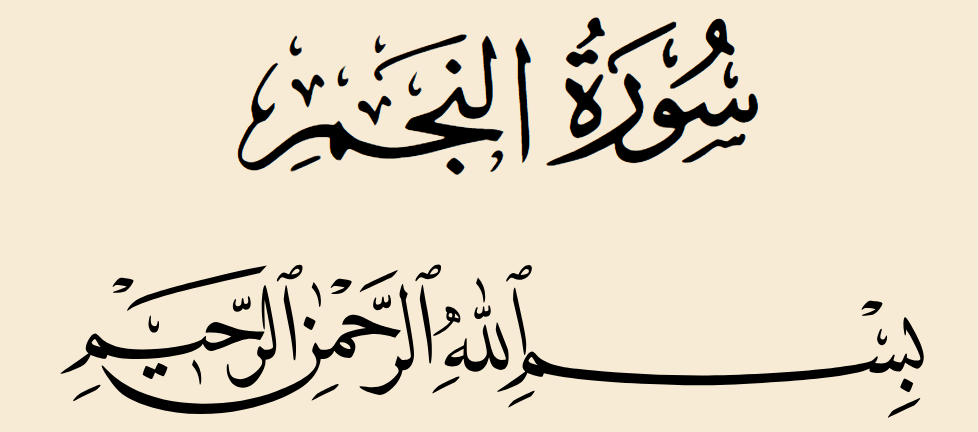 سُورَةُ النجم
بِسْمِ ٱللَّهِ ٱلرَّحْمَٰنِ ٱلرَّحِيمِ